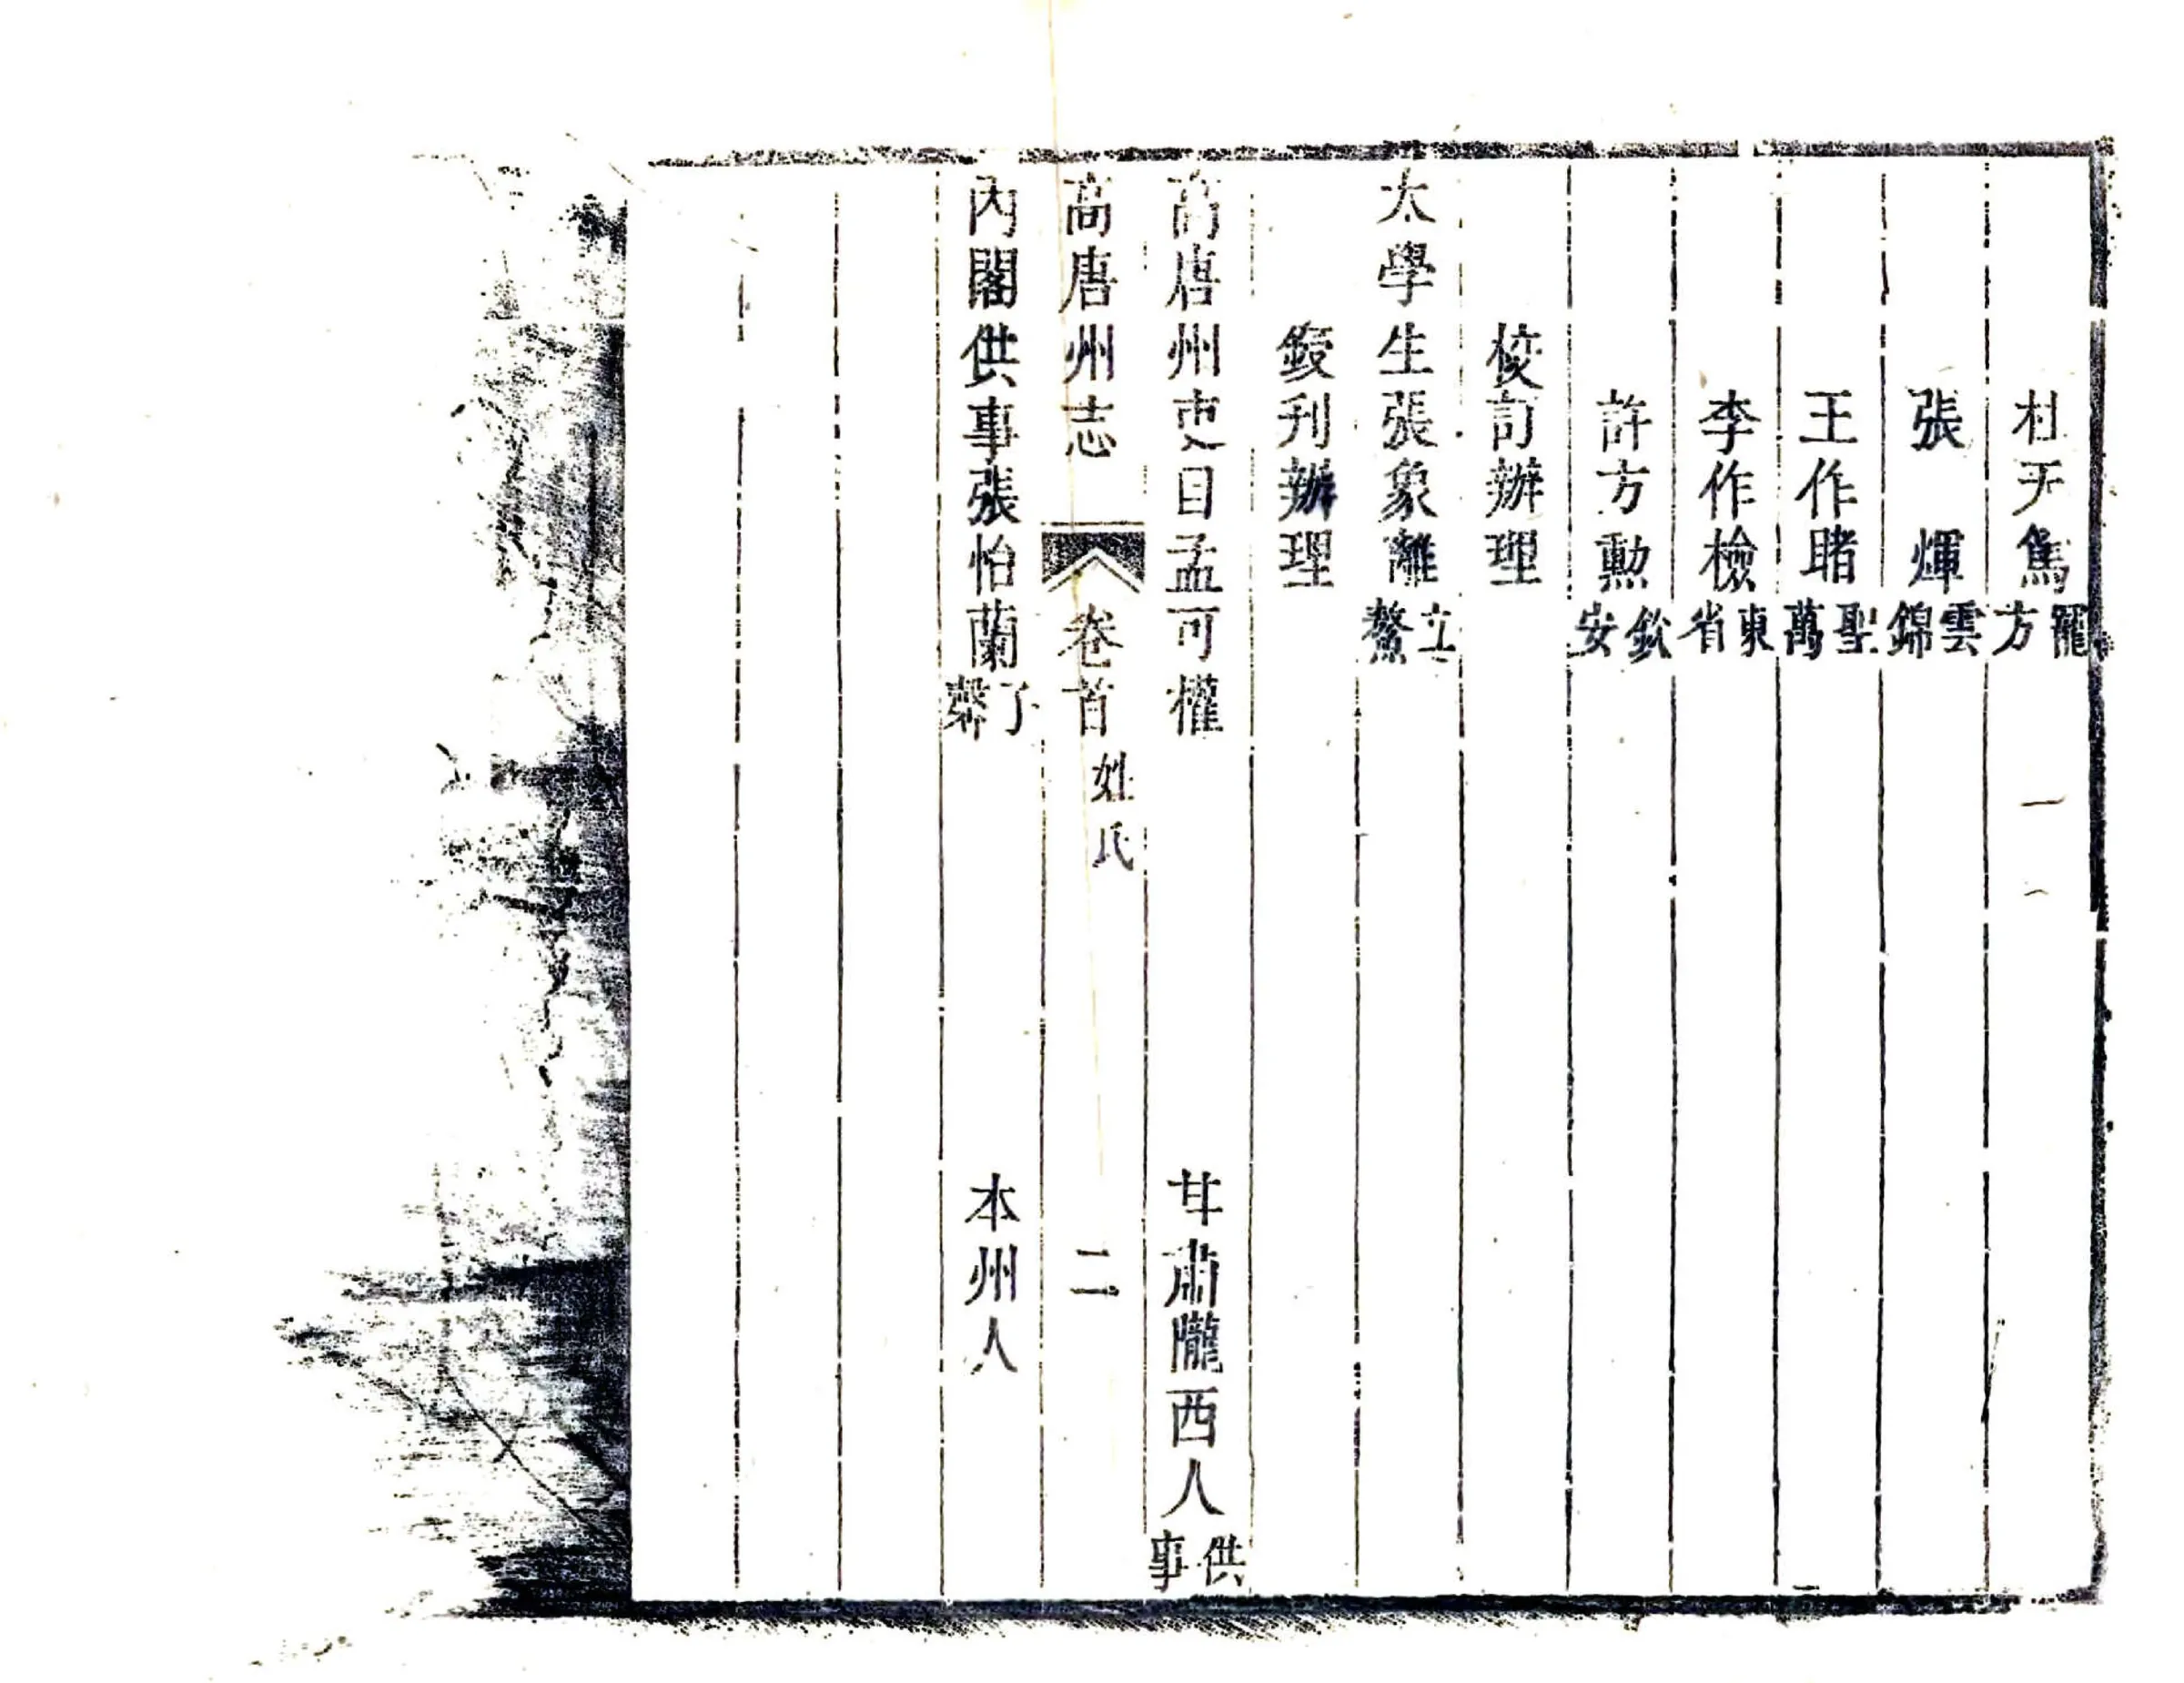 杜天雋寵方
張　煇雲錦
王作睹聖萬
李作檢東省
許方勳欽安
校訂辦理
太學生張象離立鰲
鋟刋辦理
高唐州吏目孟可權　甘肅隴西人供事
高唐州志　卷首　姓氏　二
內閣供事張怡蘭子馨　本州人